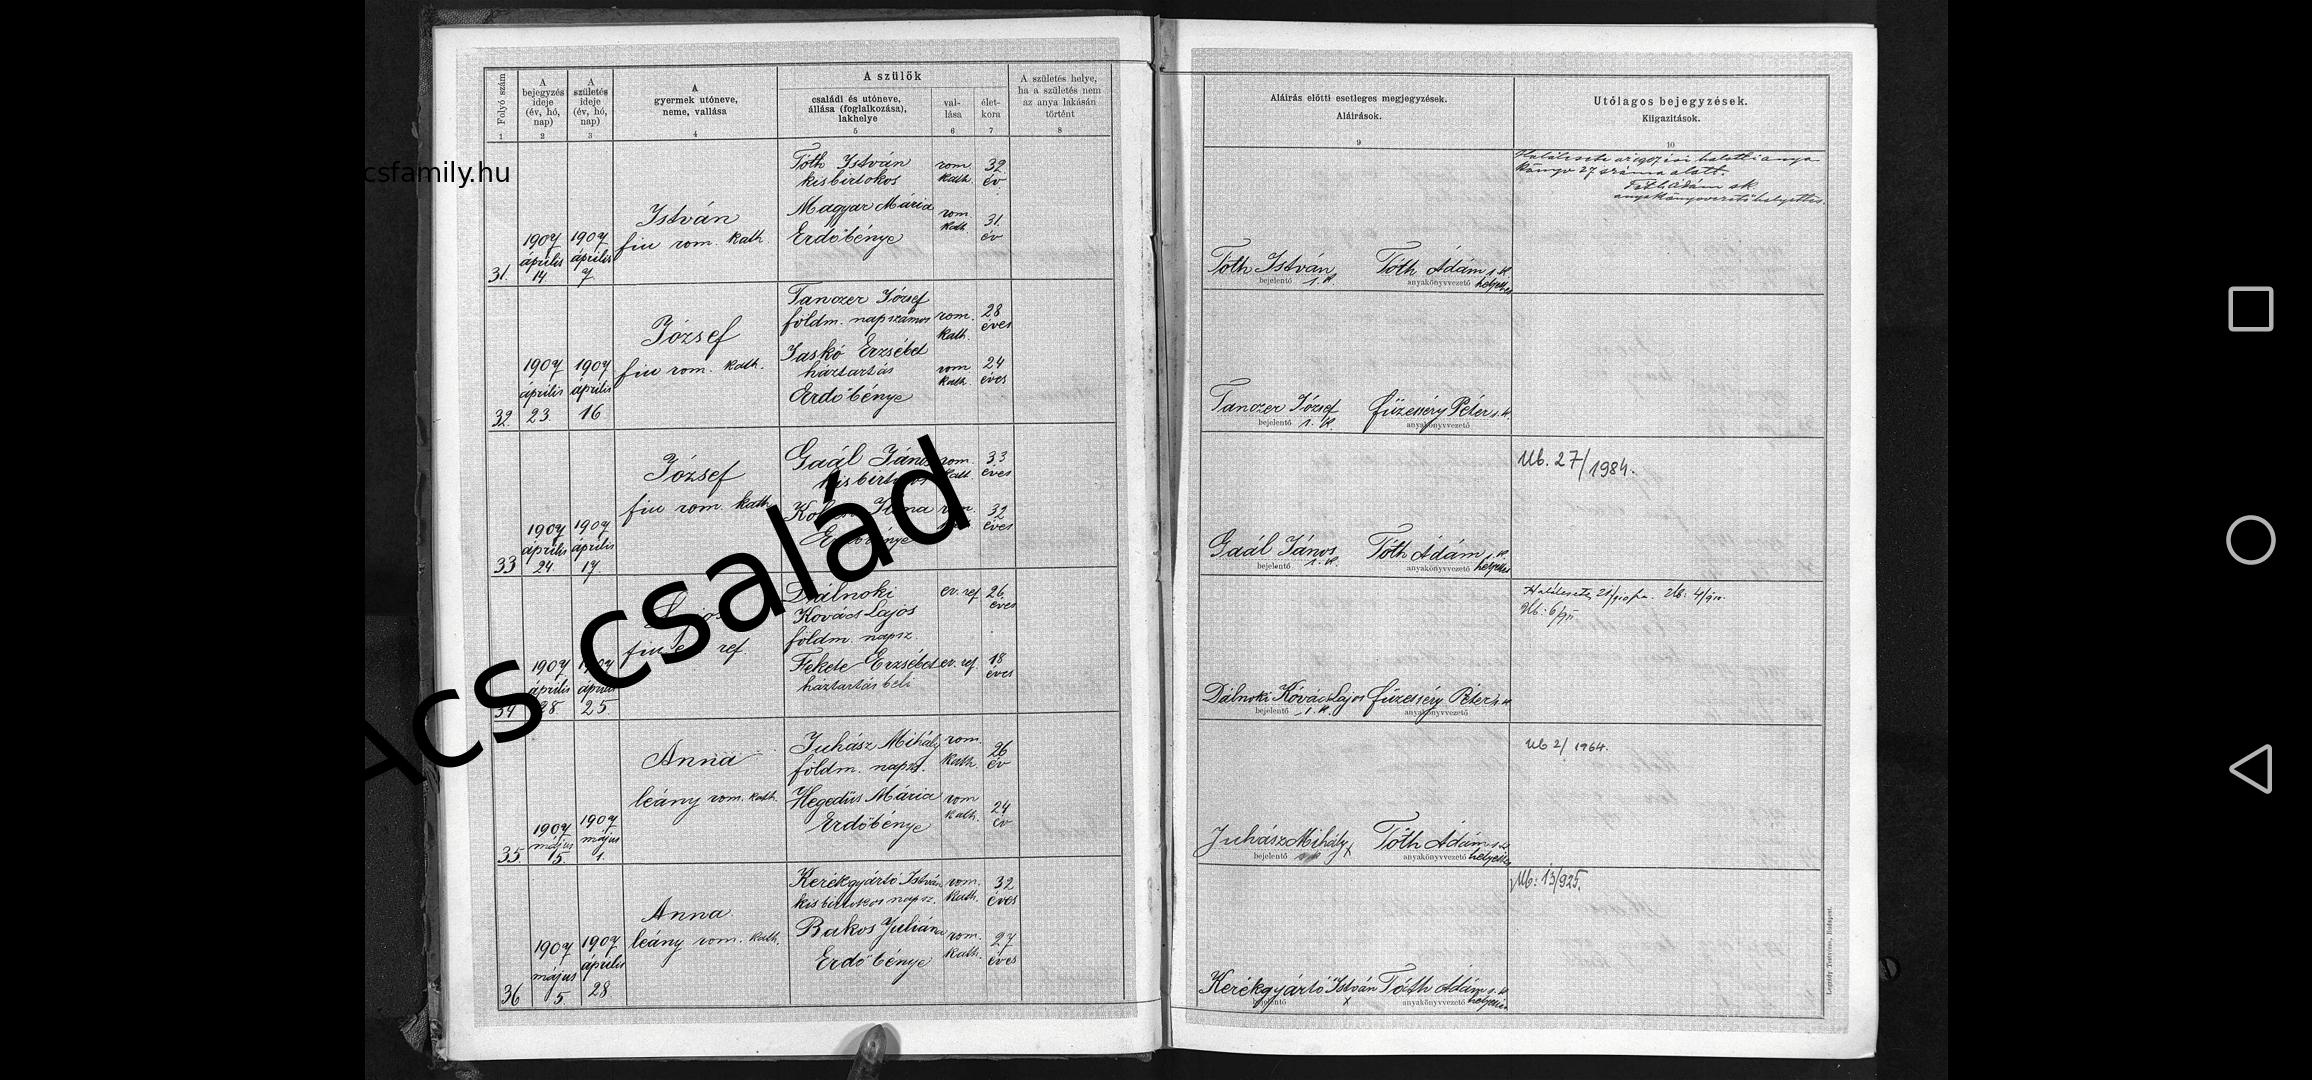 Folyó szám
1
A
bejegyzés
ideje
(év, hó,
nap)
2
A
születés
ideje
(év, hó,
nap)
3
A
gyermek utóneve,
neme, vallása
4
A szülők
családi és utóneve,
állása (foglalkozása),
lakhelye
5
val-
lása
6
élet-
kora
7
A születés helye,
ha a születés nem
az anya lakásán
történt
8
Aláírás előtti esetleges megjegyzések.
Aláírások.
9
Utólagos bejegyzések.
Kiigazítások.
10
csfamily.hu
31.
1907
április
14.
1907
április
7
István
fiu rom. kath.
Tóth István
kisbirtokos
Magyar Mária
Erdőbénye
rom.
kath.
rom.
kath.
32
év
31.
év
Tóth István
bejelentő s. k.
Tóth Ádám s. k.
anyakönyvvezető helyettes
Halálesete az 1907 évi halotti anya
könyv 27 száma alatt.
Tóth Ádám sk.
anyakönyvvezető helyettes.
32.
1907
április
23.
1907
április
16
József
fiu rom. kath.
Tanczer József
földm. napszámos
Jaskó Erzsébet
háztartás
Erdőbénye
rom.
kath.
rom.
kath.
28
éves
24
éves
Tanczer József
bejelentő s. k.
Füzesséry Péter s. k.
anyakönyvvezető
33
1907
április
24
1907
április
17
József
fiu rom. kath.
Gaál János
kisbirtokos
Ilona
Erdőbénye
rom.
kath.
rom.
33
éves
32
éves
Gaál János
bejelentő s. k.
Tóth Ádám s. k.
anyakönyvvezető helyettes
Ub. 27/1984.
34
1907
április
28.
1907
április
25.
Lajos
fiu ev. ref.
Dálnoki
Kovács Lajos
földm. napsz
Fekete Erzsébet
háztartásbeli
ev. ref
ev. ref
26.
éves
18
éves
Dálnoki Kovács Lajos
bejelentő s. k.
Füzesséry Péter s. k.
anyakönyvvezető
Halálesete
35
1907
május
5.
1907
május
1.
Anna
leány rom. kath.
Juhász Mihály
földm. napsz.
Hegedüs Mária
Erdőbénye
rom.
kath.
rom
kath.
26
év
24
év
Juhász Mihály x
bejelentő
Tóth Ádám s. k.
anyakönyvvezető helyettes
Ub 2/1964.
36
1907
május
5
1907
április
28
Anna
leány rom. kath.
Kerékgyártó István
kisbirtokos napsz.
Bakos Juliána
Erdőbénye
rom.
kath.
rom.
kath.
32
éves
27
éves
Kerékgyártó István
bejelentő x
Tóth Ádám s. k.
anyakönyvvezető helyettes
Ub: 13/925.
Ács család
Légrády Testvérek, Budapest.